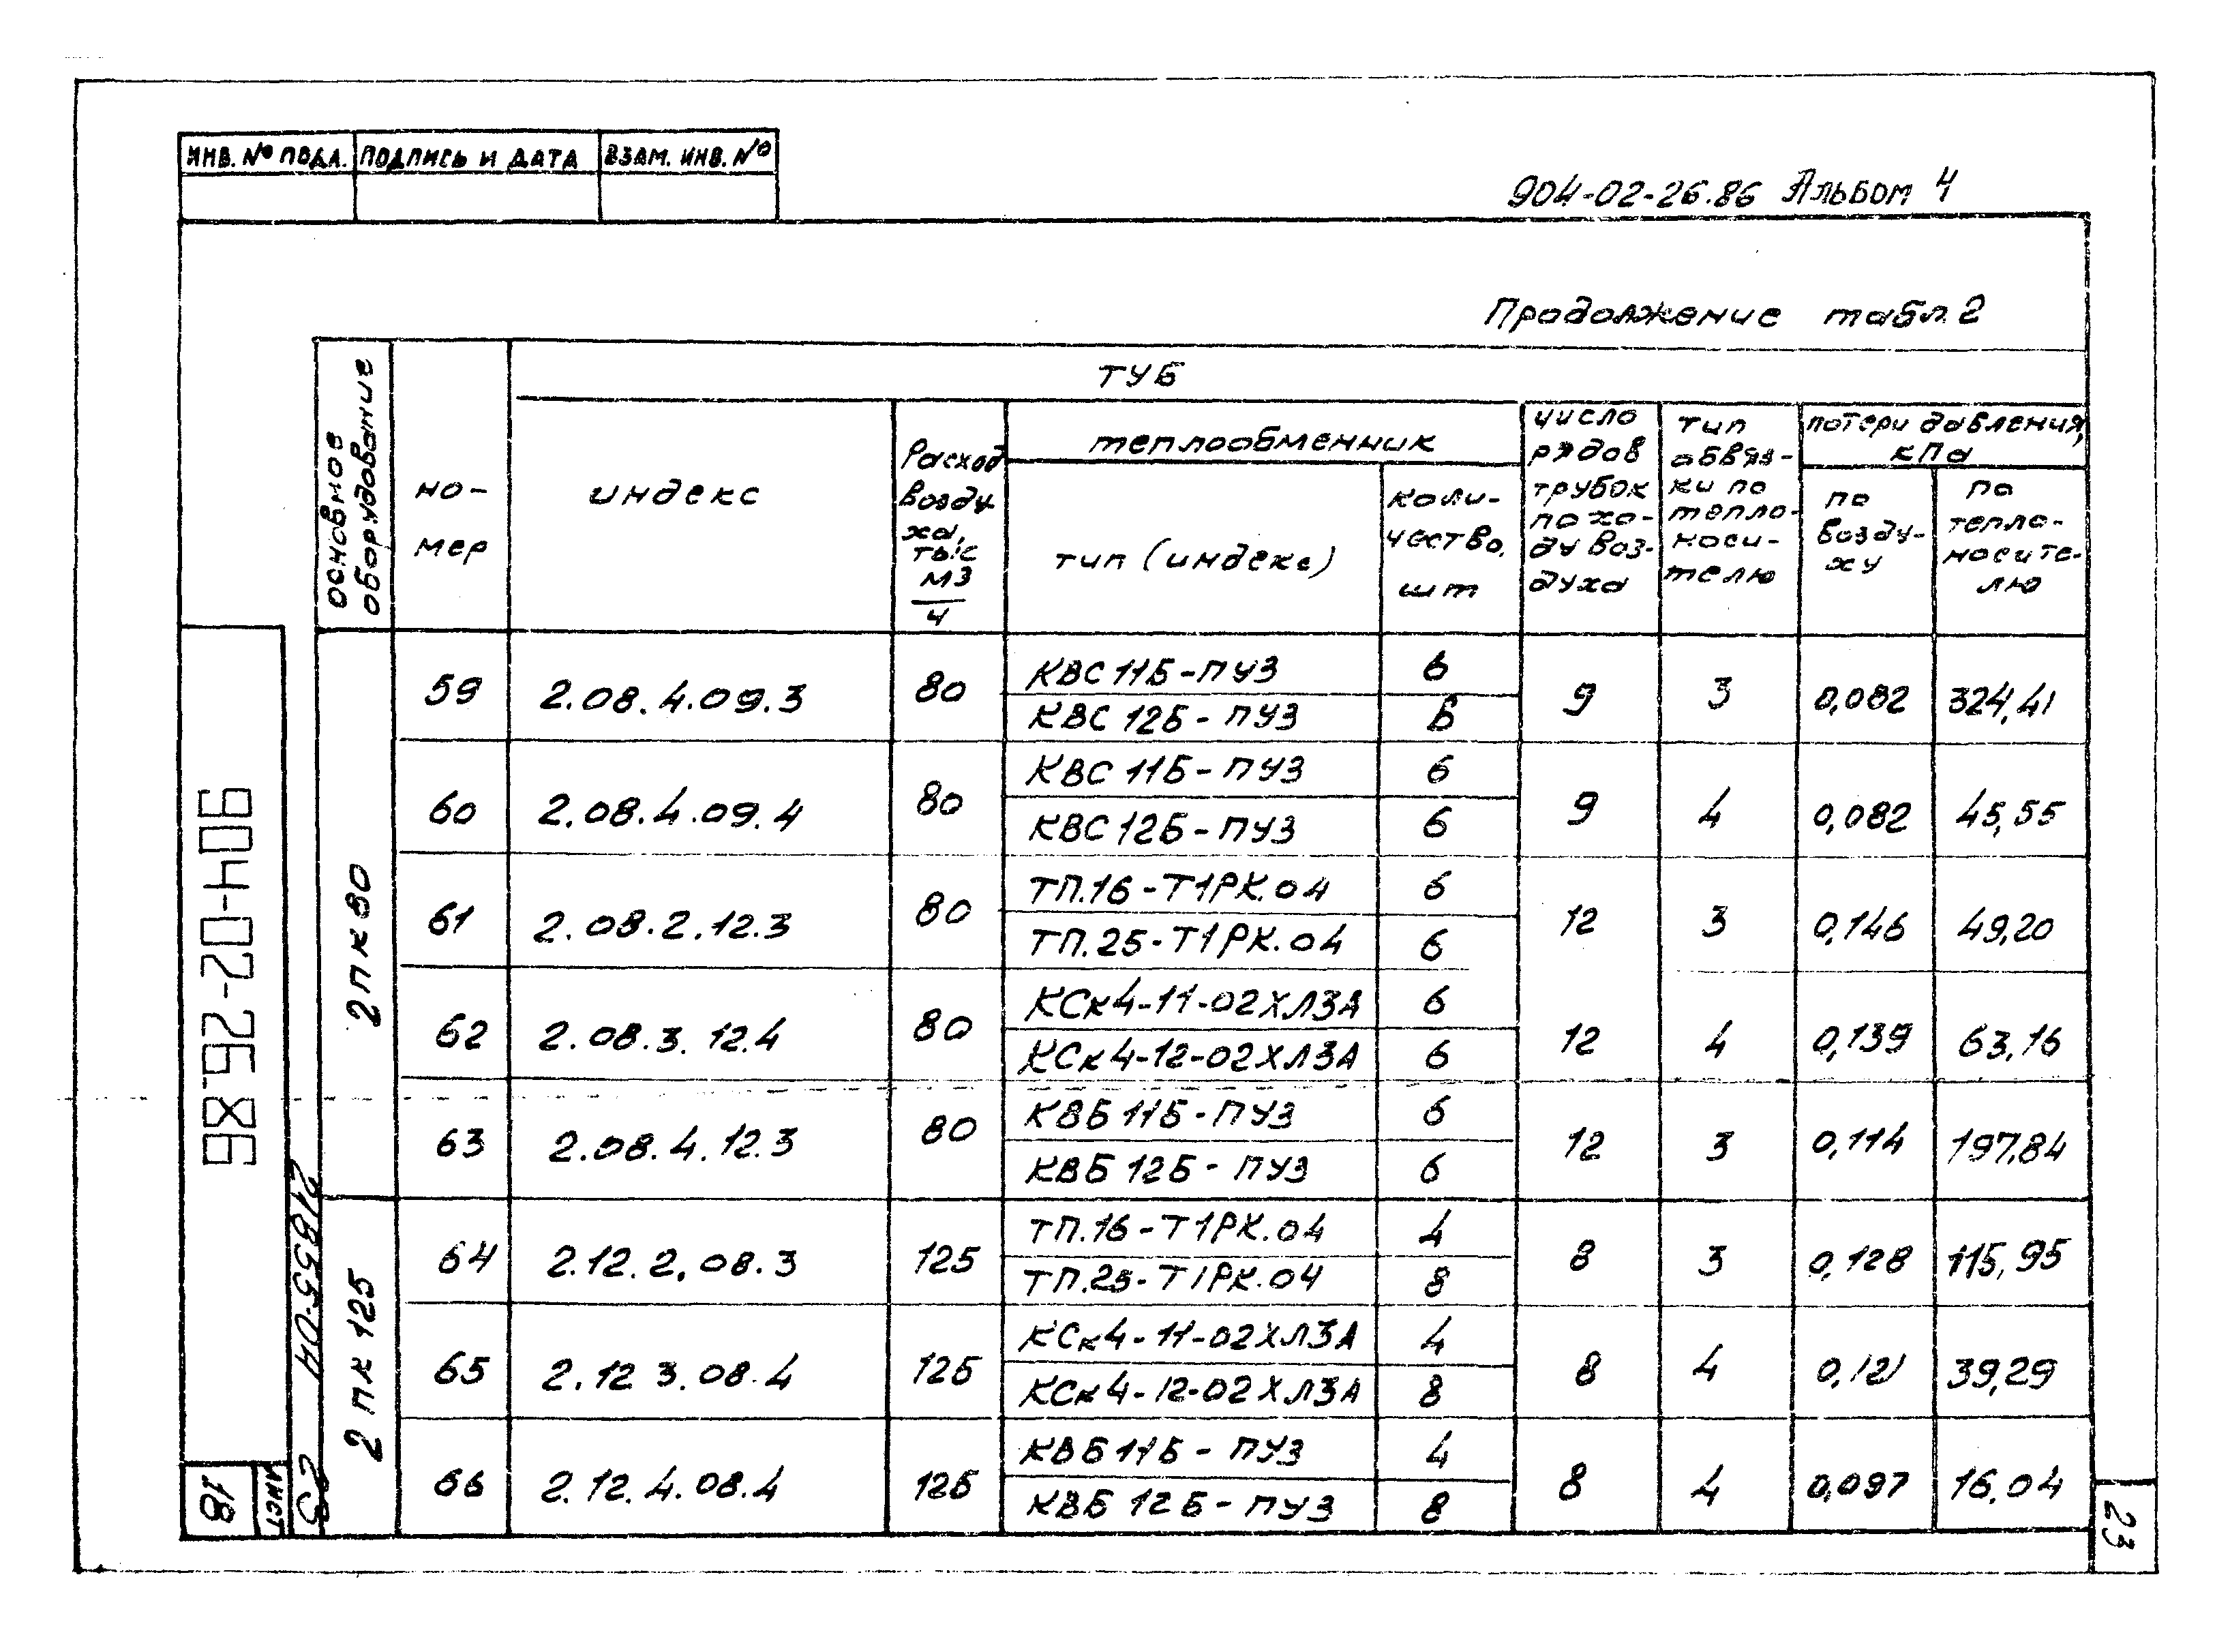 ИНВ. № ПОДЛ. ПОДПИСЬ И ДАТА ВЗАМ. ИНВ. №
904-02-26.86 Альбом 4
Продолжение табл. 2
основное оборудование
но-
мер
ТУБ
индекс
Расход
возду-
ха,
тыс
м3
ч
теплообменник
тип (индекс)
коли-
чество,
шт
число
рядов
трубок
по хо-
ду воз-
духа
тип
обвяз-
ки по
тепло-
носи-
телю
потери давления,
кПа
по
возду-
ху
по
тепло-
носите-
лю
2 ПК 80
59 2.08.4.09.3 80 КВС 11Б-ПУЗ 6 9 3 0,082 324,41
КВС 12Б-ПУЗ 6
60 2.08.4.09.4 80 КВС 11Б-ПУЗ 6 9 4 0,082 45,55
КВС 12Б-ПУЗ 6
61 2.08.2.12.3 80 ТП.16-Т1РК.04 6 12 3 0,146 49,20
ТП.25-Т1РК.04 6
62 2.08.3.12.4 80 КСк4-11-02ХЛ3А 6 12 4 0,139 63,16
КСк4-12-02ХЛ3А 6
63 2.08.4.12.3 80 КВБ 11Б-ПУЗ 6 12 3 0,114 197,84
КВБ 12Б-ПУЗ 6
2 ПК 125
64 2.12.2.08.3 125 ТП.16-Т1РК.04 4 8 3 0,128 115,95
ТП.25-Т1РК.04 8
65 2.12 3.08.4 125 КСк4-11-02ХЛ3А 4 8 4 0,121 39,29
КСк4-12-02ХЛ3А 8
66 2.12.4.08.4 125 КВБ 11Б-ПУЗ 4 8 4 0,097 16,04
КВБ 12Б-ПУЗ 8
904-02-26.86
21855-04 23
ЛИСТ
18
23